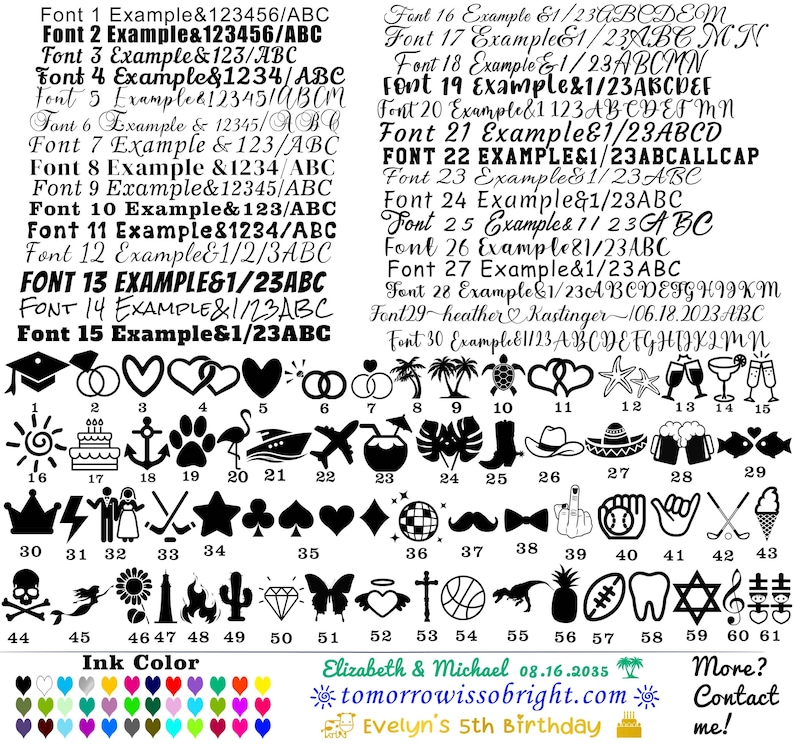 Font 1 Example&123456/ABC
Font 2 Example&123456/ABC
Font 3 Example&123/ABC
Font 4 Example&1234/ABC
Font 5 Example&12345/ABCM
Font 6 Example & 12345/ABC
Font 7 Example & 123/ABC
Font 8 Example &1234/ABC
Font 9 Example&12345/ABC
Font 10 Example&123/ABC
Font 11 Example&1234/ABC
Font 12 Example&1/2/3ABC
FONT 13 EXAMPLE&1/23ABC
FONT 14 EXAMPLE&1/23ABC
Font 15 Example&1/23ABC
Font 16 Example &1/23ABCDEM
Font 17 Example&1/23ABC MN
Font 18 Example&1/23ABMN
Font 19 Example&1/23ABCDEF
Font 20 Example&1 123ABCDEFMN
Font 21 Example&1/23ABCD
FONT 22 EXAMPLE&1/23ABCALLCAP
Font 23 Example&1/23ABC
Font 24 Example&1/23ABC
Font 25 Example&1/23ABC
Font 26 Example&1/23ABC
Font 27 Example&1/23ABC
Font 28 Example&1/23cABCDEFGHIJKM
Font29~heather♡Kastinger~/06.18.2023ABC
Font 30 Example&1/23ABCDEFGHIJKLMN
1 2 3 4 5 6 7 8 9 10 11 12 13 14 15
16 17 18 19 20 21 22 23 24 25 26 27 28 29
30 31 32 33 34 35 36 37 38 39 40 41 42 43
44 45 46 47 48 49 50 51 52 53 54 55 56 57 58 59 60 61
Ink Color
Elizabeth & Michael 08.16.2035
tomorrowissobright.com
Evelyn's 5th Birthday
More?
Contact
me!